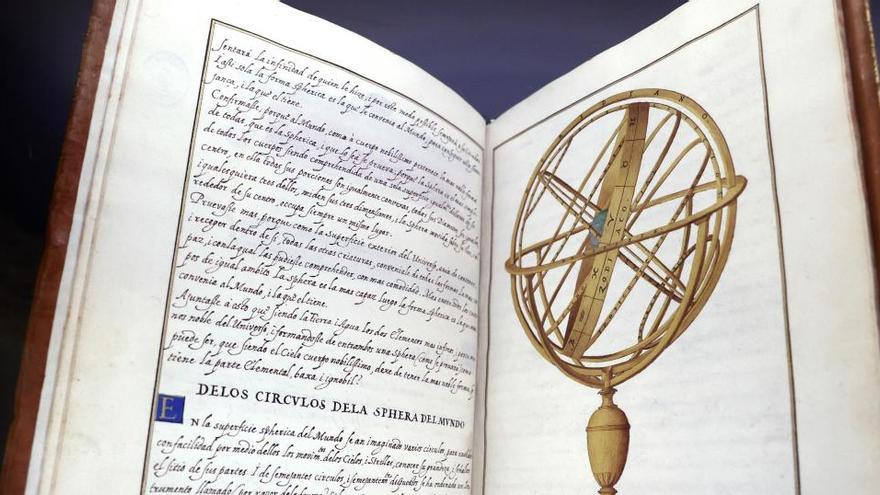 sentará la infinidad de quien lo hizo, i por este modo possible
I assi sola la forma spherica es la que le convenia al Mundo, para
janca, i la que el tiene.
Confirmasse, porque al Mundo, como à cuerpo nobilissimo pertenece la mas noble forma
de todas, que es la Spherica, i que lo sea se prueva; porque la Sphera es
de todos los cuerpos siendo comprehendida de una sola superficie
centro, en ella todas sus porciones son igualmente convexas, todos sus Diametros
igualesquiera tres dellos, miden sus tres dimensiones, i la Sphera movida
rededor de su centro, occupa siempre un mismo lugar.
Pruevasse mas porque, como la superficie exterior del Universo, aya de contener
i recoger dentro de si, todas las otras criaturas, conveniale de todas las formas la mas
paz, i con la qual las pudiesse comprehender, con mas comodidad. Mas entre todos los
pos de igual ambito, la Sphera es la mas capaz luego la forma Spherica es la que
convenia al Mundo, i la que el tiene.
Ajuntasse à esto que siendo la Tierra, i Agua los dos Elementos mas infimos, i
nos noble del Universo, i formandosse de entrambos una Sphera (como se provará)
puede ser, que siendo el Cielo cuerpo nobilissimo, dexe de tener la mas noble forma,
tiene la parte Elemental, baxa i ignobil?
DELOS CIRCVLOS DELA SPHERA DEL MVNDO
EN la superficie spherica del Mundo se an imaginado varios circulos, para
con facilidad por medio dellos los movim.tos delos Cielos, i Strellas, conocer
el sitio de sus partes. I de semejantes circulos, i semejantem.te
trumento llamado
ZODIACO